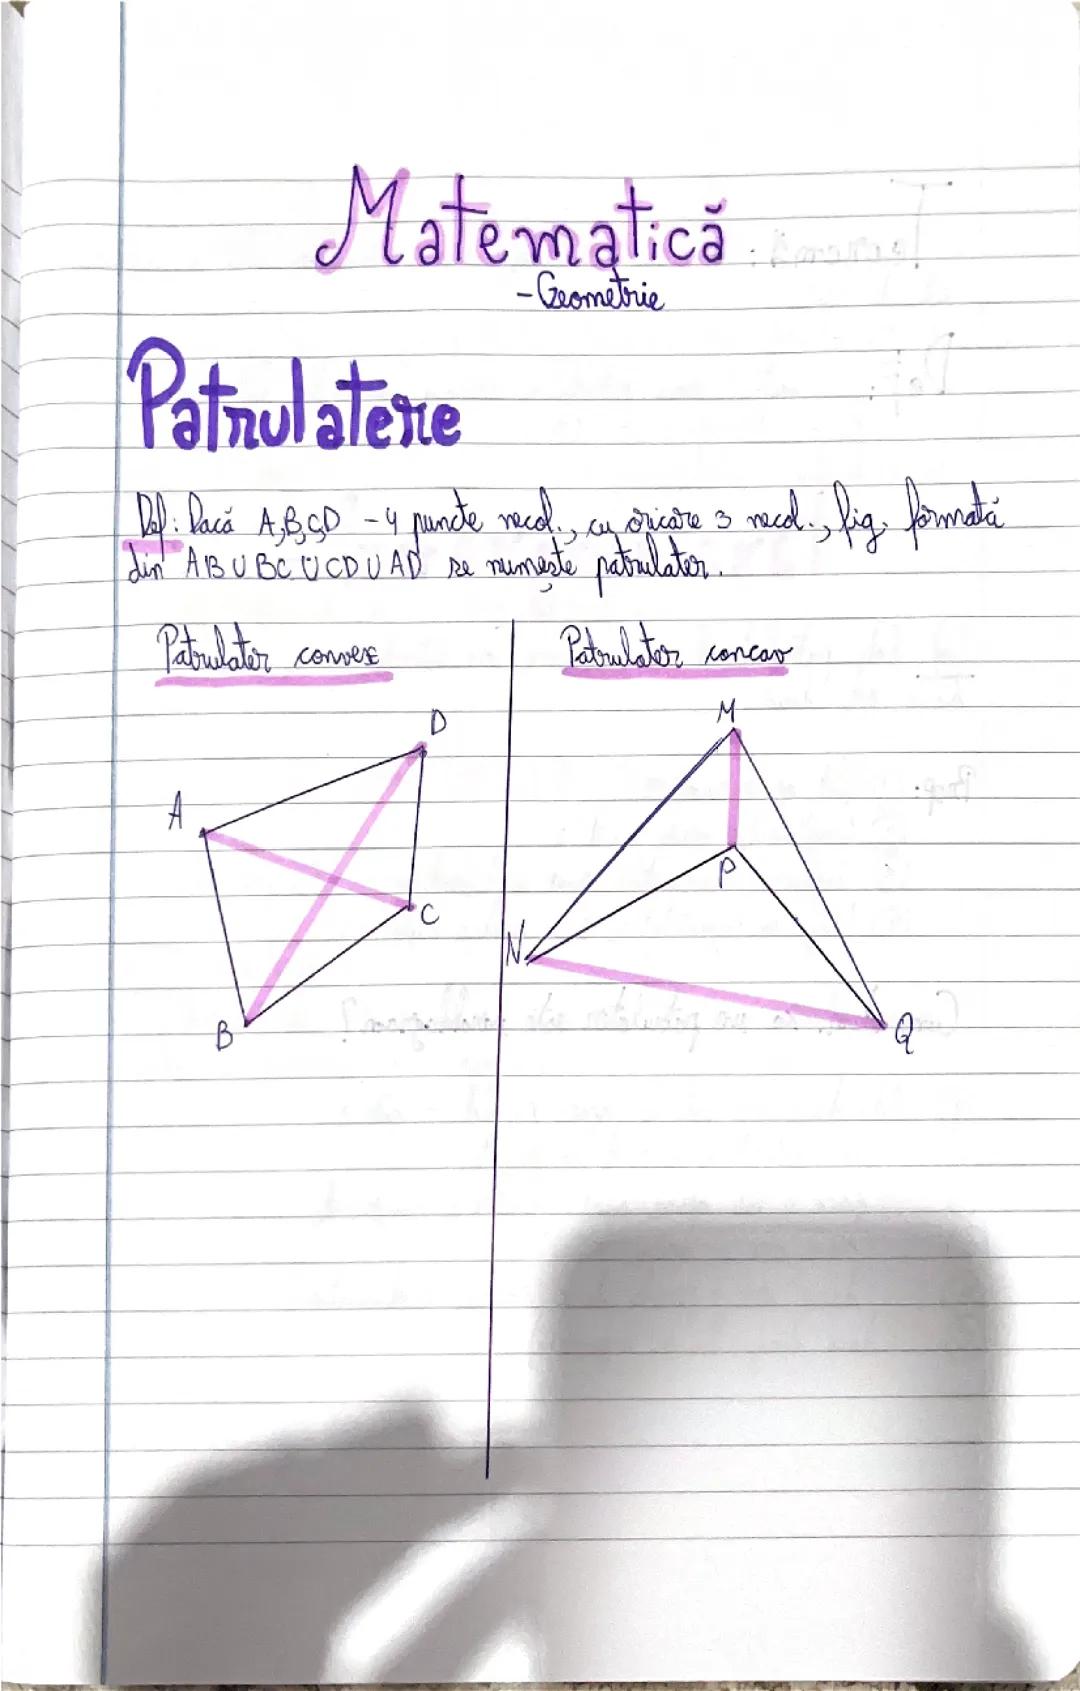 Matematică
- Geometrie
Patrulatere
Def: Dacă A,B,C,D - 4 puncte necol., cu oricare 3 necol., fig. formată
din AB U BC U CD U AD se numește patrulater.
Patrulater convex
Patrulater concav
D
M
A
P
C
N
B
Q